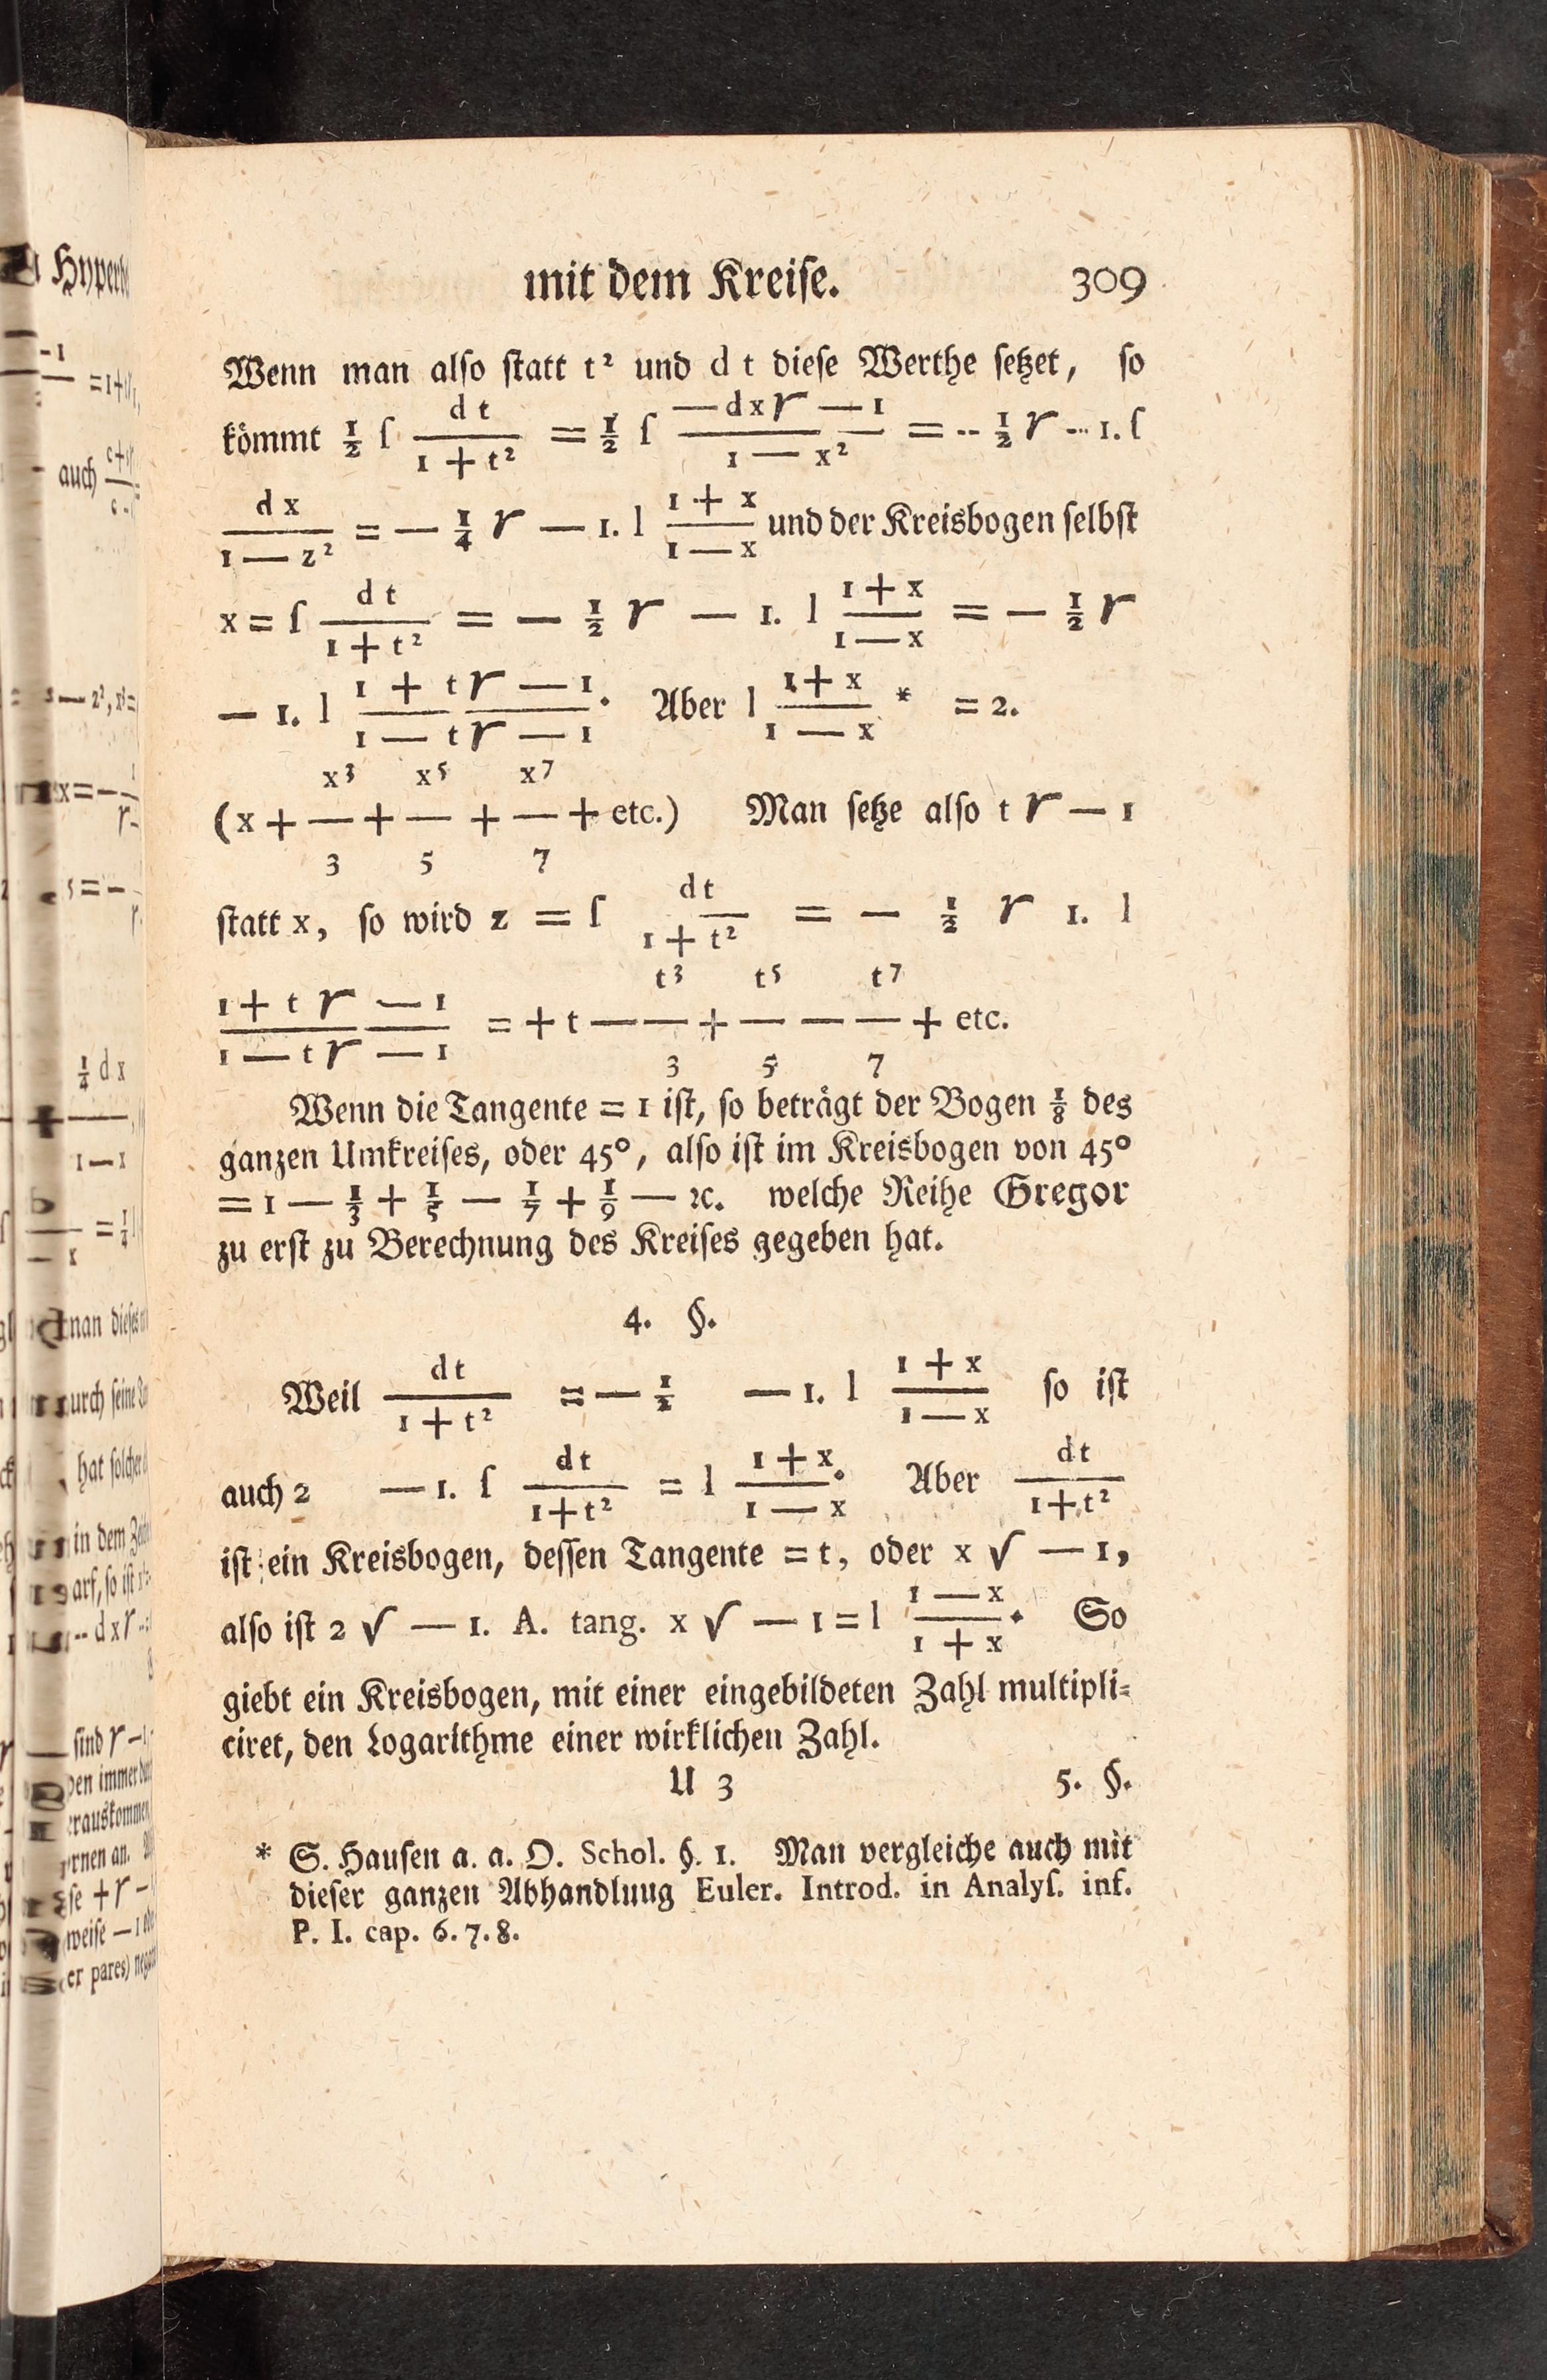 mit dem Kreise. 309
Wenn man also statt t² und d t diese Werthe setzet, so
kömmt ½ ſ dt/(1 + t²) = ½ ſ (— dx √ — 1)/(1 — x²) = -- ½ √ -- 1. ſ
dx/(1 — z²) = — ¼ √ — 1. l (1 + x)/(1 — x) und der Kreisbogen selbst
x = ſ dt/(1 + t²) = — ½ √ — 1. l (1 + x)/(1 — x) = — ½ √
— 1. l (1 + t √ — 1)/(1 — t √ — 1). Aber l (1 + x)/(1 — x) * = 2.
(x + x³/3 + x⁵/5 + x⁷/7 + etc.) Man setze also t √ — 1
statt x, so wird z = ſ dt/(1 + t²) = — ½ √ 1. l
(1 + t √ — 1)/(1 — t √ — 1) = + t — t³/3 + t⁵/5 — t⁷/7 + etc.
Wenn die Tangente = 1 ist, so beträgt der Bogen ⅛ des
ganzen Umkreises, oder 45°, also ist im Kreisbogen von 45°
= 1 — ⅓ + ⅕ — 1/7 + 1/9 — ꝛc. welche Reihe Gregor
zu erst zu Berechnung des Kreises gegeben hat.
4. §.
Weil dt/(1 + t²) = — ½ — 1. l (1 + x)/(1 — x) so ist
auch 2 — 1. ſ dt/(1 + t²) = l (1 + x)/(1 — x). Aber dt/(1 + t²)
ist ein Kreisbogen, dessen Tangente = t, oder x √ — 1,
also ist 2 √ — 1. A. tang. x √ — 1 = l (1 — x)/(1 + x). So
giebt ein Kreisbogen, mit einer eingebildeten Zahl multipli-
ciret, den Logarithme einer wirklichen Zahl.
U 3 5. §.
* S. Hausen a. a. O. Schol. §. 1. Man vergleiche auch mit
dieser ganzen Abhandluug Euler. Introd. in Analyſ. inf.
P. I. cap. 6. 7. 8.